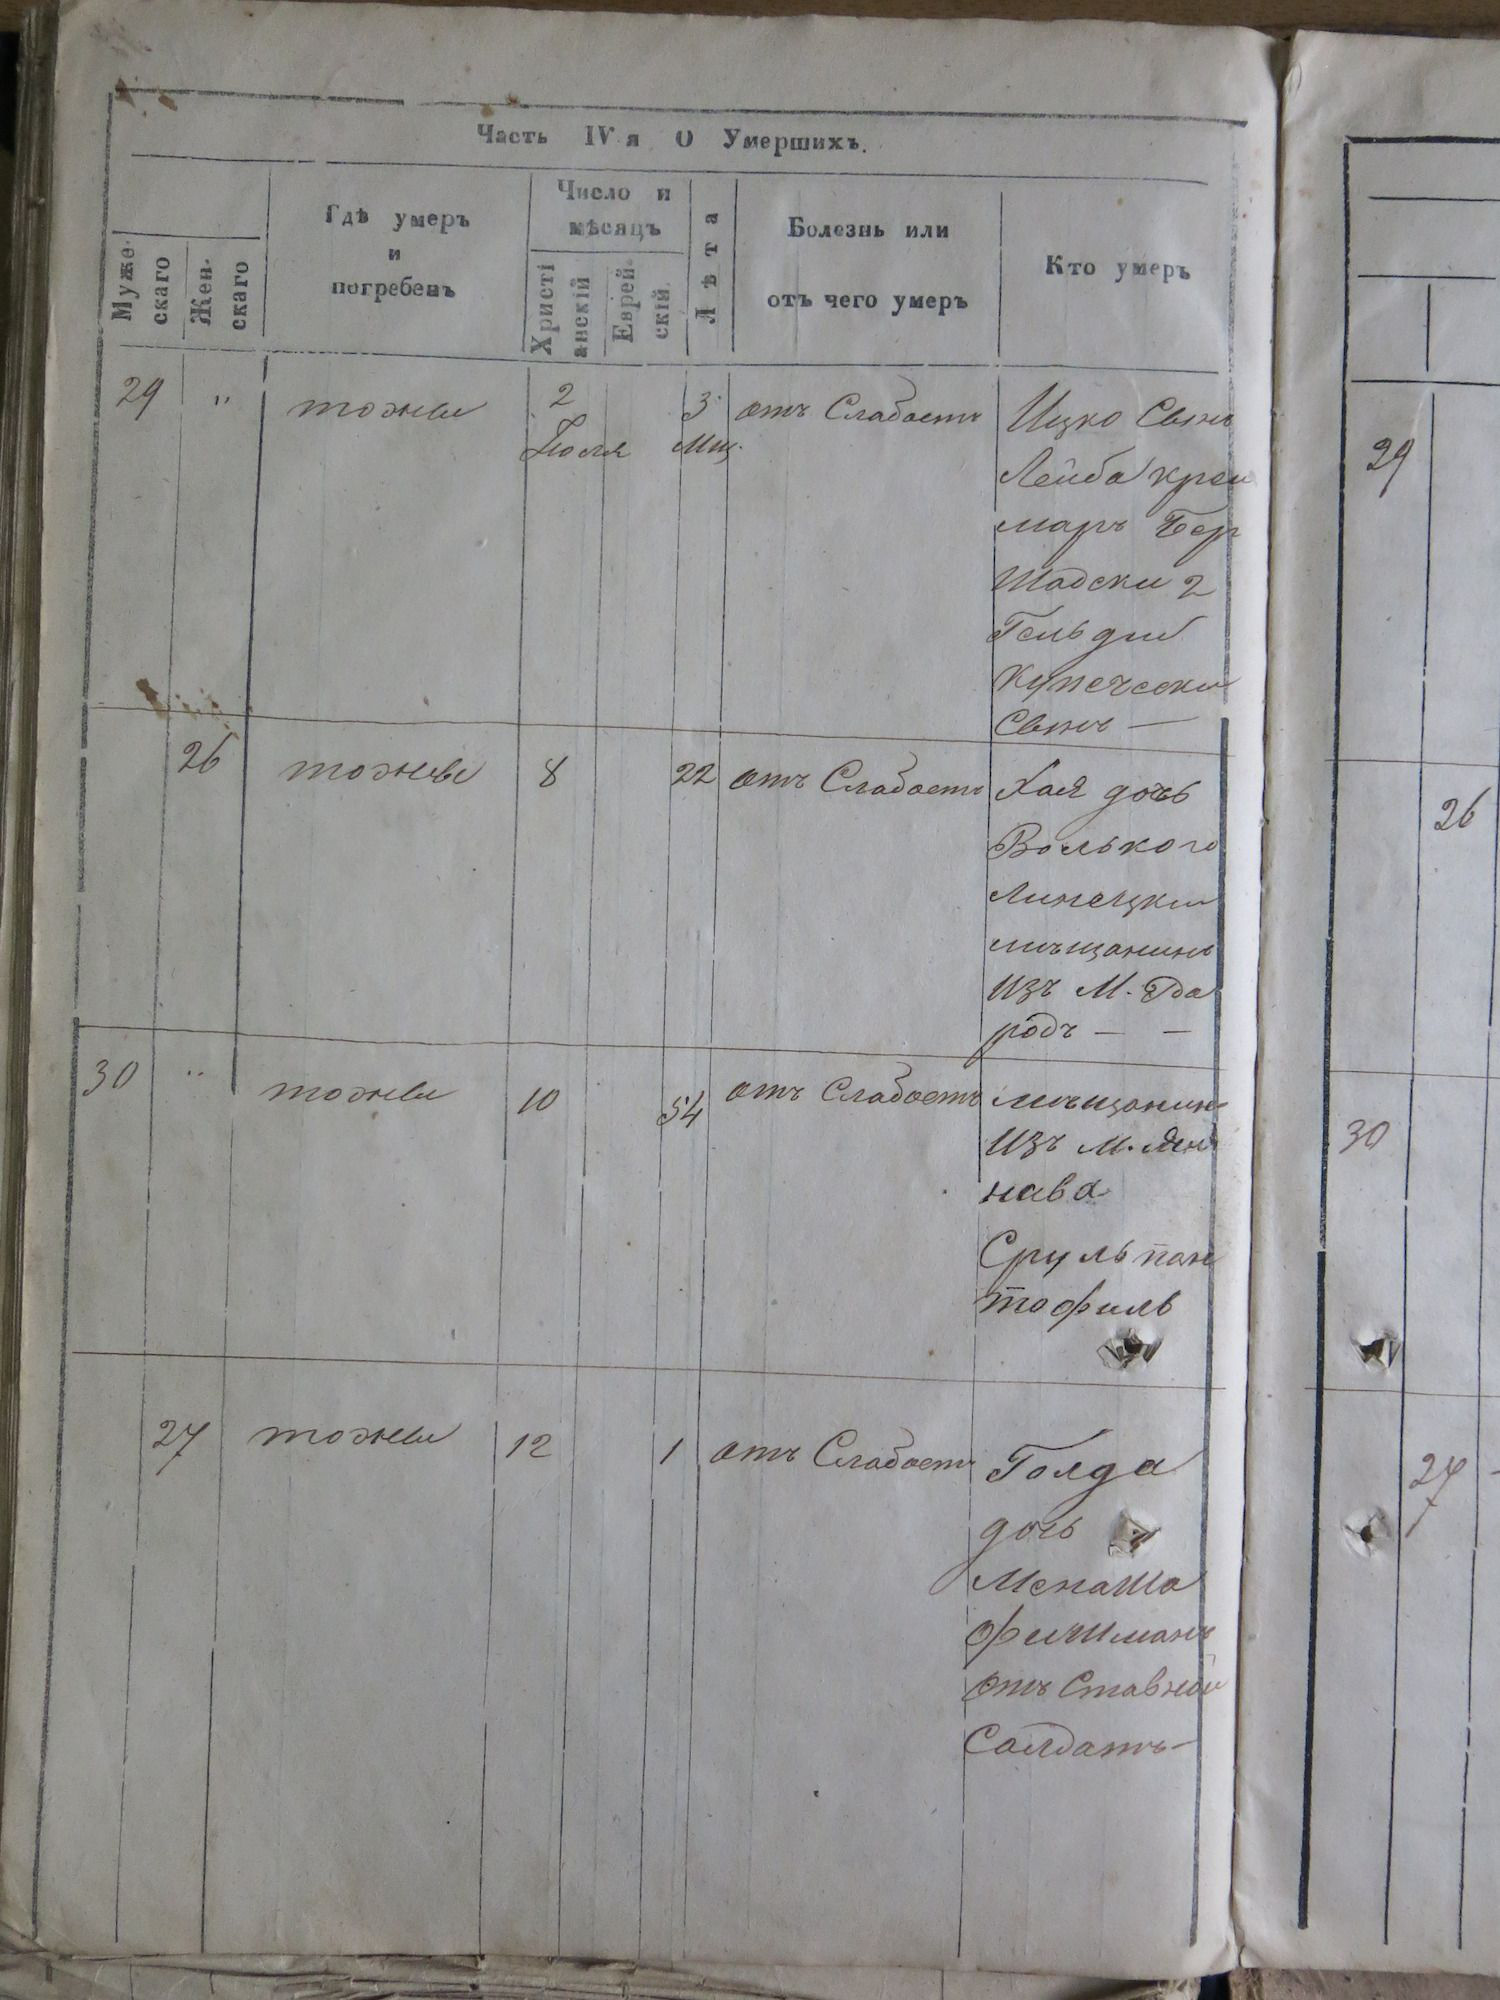 Часть IVя О Умершихъ.
Мужескаго
Женскаго
Гдѣ умеръ
и
погребенъ
Число и
мѣсяцъ
Христіанскій
Еврейскій
Лѣта
Болезнь или
отъ чего умеръ
Кто умеръ
29 " тожеи 2 3 отъ Слабость Ицко Сынъ
Іюля Мщ.
Лейба крем
маръ Бер
шадски 2
Гельдии
купечески
Сынъ —
26 тожеи 8 22 отъ Слабость Хая дочъ
Волького
Линецки
мѣщанинъ
изъ М.
родъ — —
30 " тожеи 10 54 отъ Слабость мѣщанин
изъ М.
нава
Сруль пан
тофиль
27 тожеи 12 1 отъ Слабость Голда
дочь
Менаша
Фишманъ
отъ Ставной
Солдатъ —
29
26
30
27